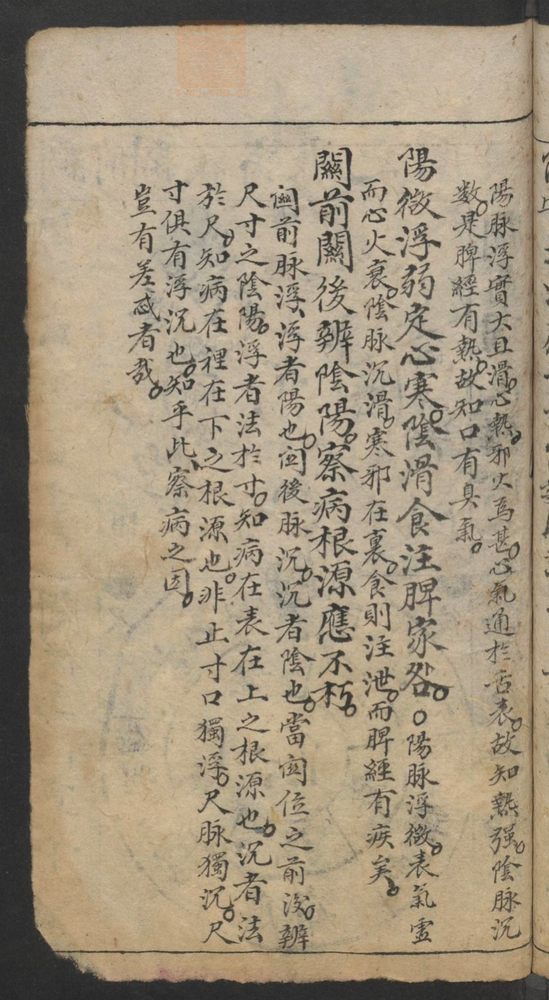 陽脉浮實大且滑。心熱邪火爲甚。心氣通於舌表。故知熱强。陰脉沉
数。是脾經有熱。故知口有臭氣。
陽微浮弱定心寒。陰滑食注脾家咎。○陽脉浮微。表氣虛
而心火衰。陰脉沉滑。寒邪在裏。食則注泄。而脾經有疾矣。
關前關後辨陰陽。察病根源應不朽。
関前脉浮、浮者陽也。関後脉沉。沉者陰也。當関位之前後。辨
尺寸之陰陽。浮者法於寸。知病在表在上之根源也。沉者法
於尺。知病在裡在下之根源也。非止寸口獨浮。尺脉獨沉。尺
寸俱有浮沉也。知乎此、察病之因。
豈有差忒者哉。